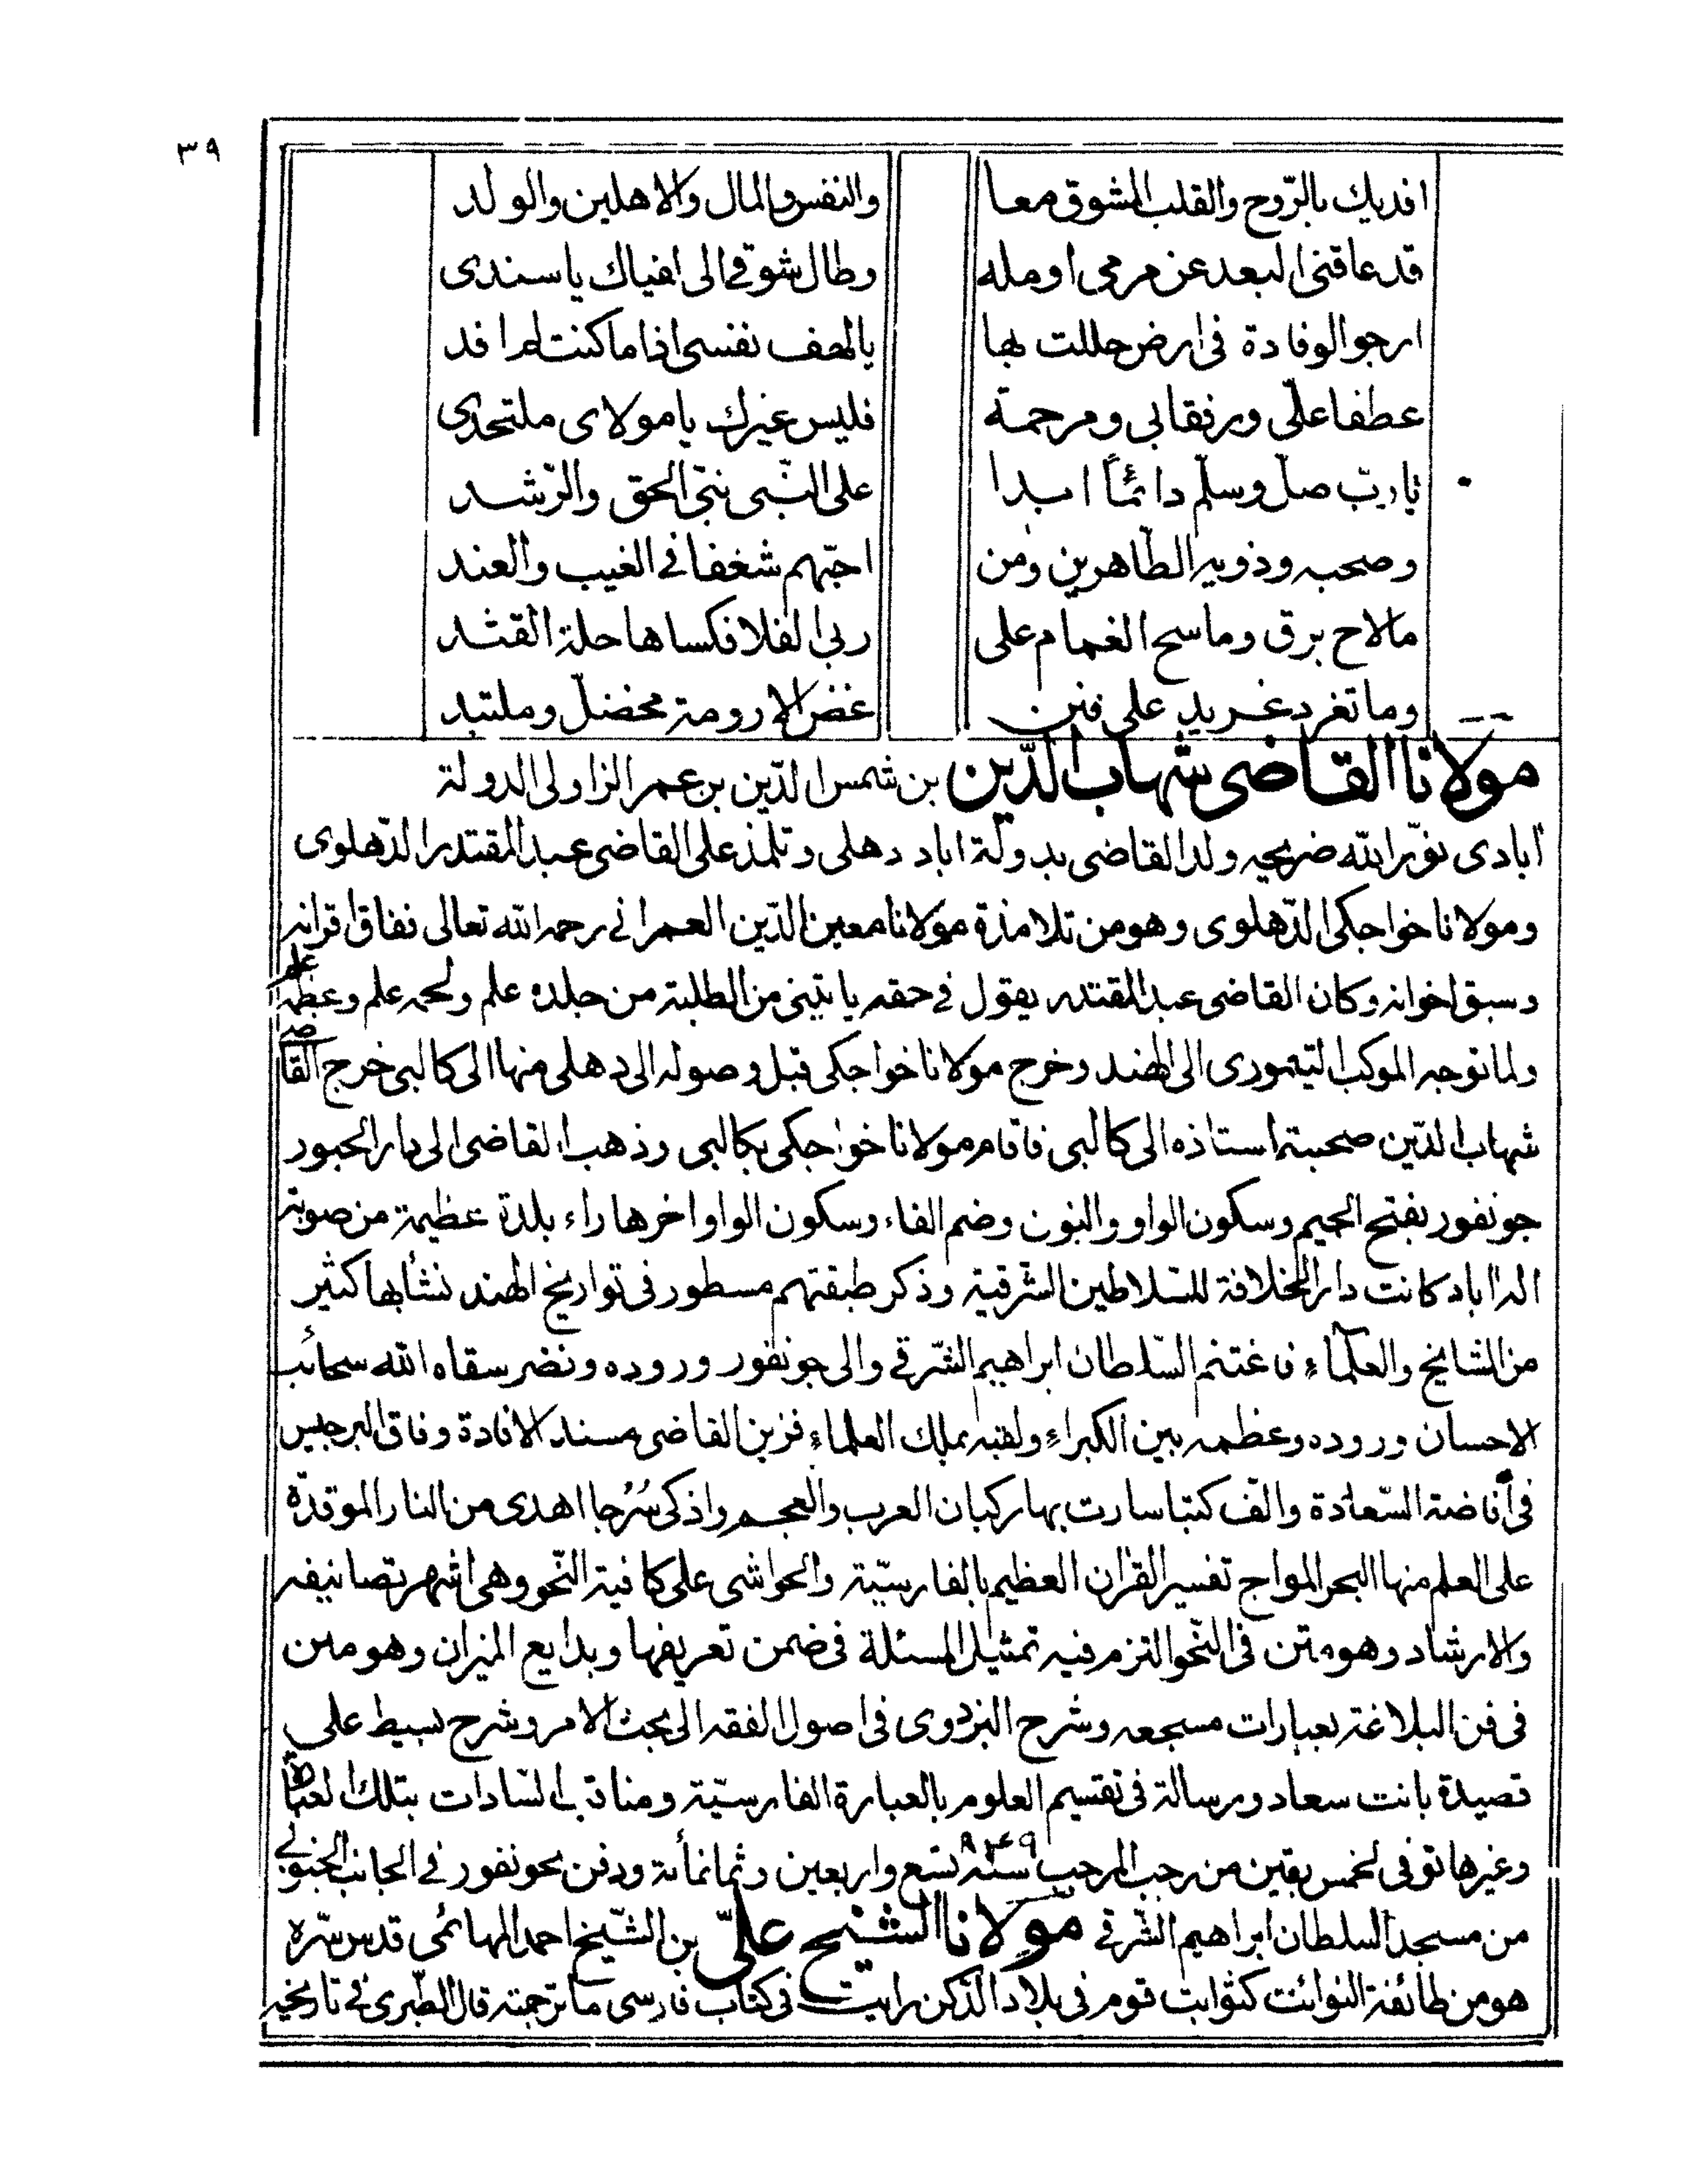 ٣٩
افديك بالرّوح والقلب المشوق معا والنفس والمال والاهلين والولد
قد عاقنى البعد عن مرمى اومله وطال شوقى الى لقياك يا سندى
ارجو الوفادة فى ارض حللت بها يا لهف نفسى اذا ما كنت لم افد
عطفا علىّ ورفقا بى ومرحمة فليس غيرك يا مولاى ملتحدى
يا ربّ صلّ وسلّم دائماً ابدا على النّبى نبىّ الحق والرّشد
وصحبه وذويه الطّاهرين ومن احبّهم شغفا فى الغيب والعند
ما لاح برق وما سح الغمام على ربى الفلا فكساها حلة القشد
وما تغرد غريد على فنن غض الارومة مخضلّ وملتبد
مولانا القاضى شهاب الدّين بن شمس الدّين بن عمر الزاولى الدولة
ابادى نوّر الله ضريحه ولد القاضى بدولة اباد دهلى وتلمذ على القاضى عبد المقتدر الدّهلوى
ومولانا خواجكى الدّهلوى وهو من تلامذة مولانا معين الدّين العمرانى رحمه الله تعالى ففاق اقرانه
وسبق اخوانه وكان القاضى عبد المقتدر يقول فى حقه ياتينى من الطلبة من جلده علم ولحمه علم وعظمه علم
ولما توجه الموكب التيمورى الى الهند وخرج مولانا خواجكى قبل وصوله الى دهلى منها الى كالبى خرج القاضى
شهاب الدّين صحبة استاذه الى كالبى فاقام مولانا خواجكى بكالبى وذهب القاضى الى دار الحبور
جونفور بفتح الجيم وسكون الواو والنون وضم الفاء وسكون الواو اخرها راء بلدة عظيمة من صوبة
اله اباد كانت دار الخلافة للسّلاطين الشّرقية وذكر طبقتهم مسطور فى تواريخ الهند نشأ بها كثير
من المشايخ والعلماء فاغتنم السّلطان ابراهيم الشّرقى والى جونفور وروده ونضر سقاه الله سحائب
الاحسان وروده وعظمه بين الكبراء ولقبه بملك العلماء فزين القاضى مسند الافادة وفاق البرجيس
فى افاضة السّعادة والّف كتبا سارت بها ركبان العرب والعجم واذكى سُرُجا اهدى من النار الموقدة
على العلم منها البحر المواج تفسير القران العظيم بالفارسيّة والحواشى على كافية النّحو وهى اشهر تصانيفه
والارشاد وهو متن فى النّحو التزم فيه تمثيل المسئلة فى ضمن تعريفها وبدايع الميزان وهو متن
فى فن البلاغة بعبارات مسجعه وشرح البزدوى فى اصول الفقه الى بحث الامر وشرح بسيط على
قصيدة بانت سعاد ورسالة فى تقسيم العلوم بالعبارة الفارسيّة ومناقب السّادات بتلك العبارة
وغيرها توفى لخمس بقين من رجب المرجب سنة ٨٤٩ تسع واربعين وثمانمأة ودفن بجونفور فى الجانب الجنوبى
من مسجد السلطان ابراهيم الشّرقى مولانا الشيخ علىّ بن الشّيخ احمد المهائمى قدس سّره
هو من طائفة النوائت كثوابت قوم فى بلاد الدّكن رايت فى كتاب فارسى ما ترجمته قال الطّبرى فى تاريخه